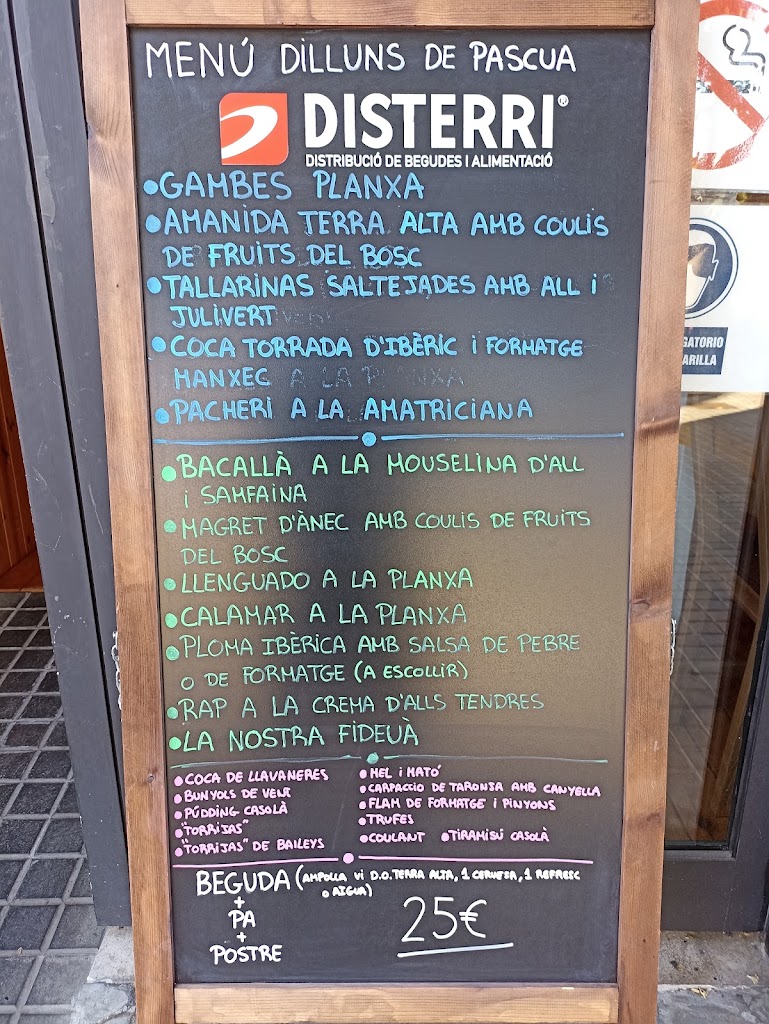 MENÚ DILLUNS DE PASCUA
DISTERRI®
DISTRIBUCIÓ DE BEGUDES I ALIMENTACIÓ
•GAMBES PLANXA
•AMANIDA TERRA ALTA AMB COULIS
DE FRUITS DEL BOSC
•TALLARINAS SALTEJADES AMB ALL i
JULIVERT
•COCA TORRADA D'IBÈRIC i FORMATGE
MANXEG
•PACHERI A LA AMATRICIANA
•BACALLÀ A LA MOUSELINA D'ALL
i SAMFAINA
•MAGRET D'ÀNEC AMB COULIS DE FRUITS
DEL BOSC
•LLENGUADO A LA PLANXA
•CALAMAR A LA PLANXA
•PLOMA IBÈRICA AMB SALSA DE PEBRE
O DE FORMATGE (A ESCOLLIR)
•RAP A LA CREMA D'ALLS TENDRES
•LA NOSTRA FIDEUÀ
•COCA DE LLAVANERES
•BUNYOLS DE VENT
•PÚDDING CASOLÀ
•"TORRIJAS"
•"TORRIJAS" DE BAILEYS
•MEL i MATÓ
•CARPACCIO DE TARONJA AMB CANYELLA
•FLAM DE FORMATGE i PINYONS
•TRUFES
•COULANT •TIRAMISÚ CASOLÀ
BEGUDA (AMPOLLA VI D.O. TERRA ALTA, 1 CERVESA, 1 REFRESC
O AIGUA)
+
PA
+
POSTRE
25€
GATORIO
ARILLA